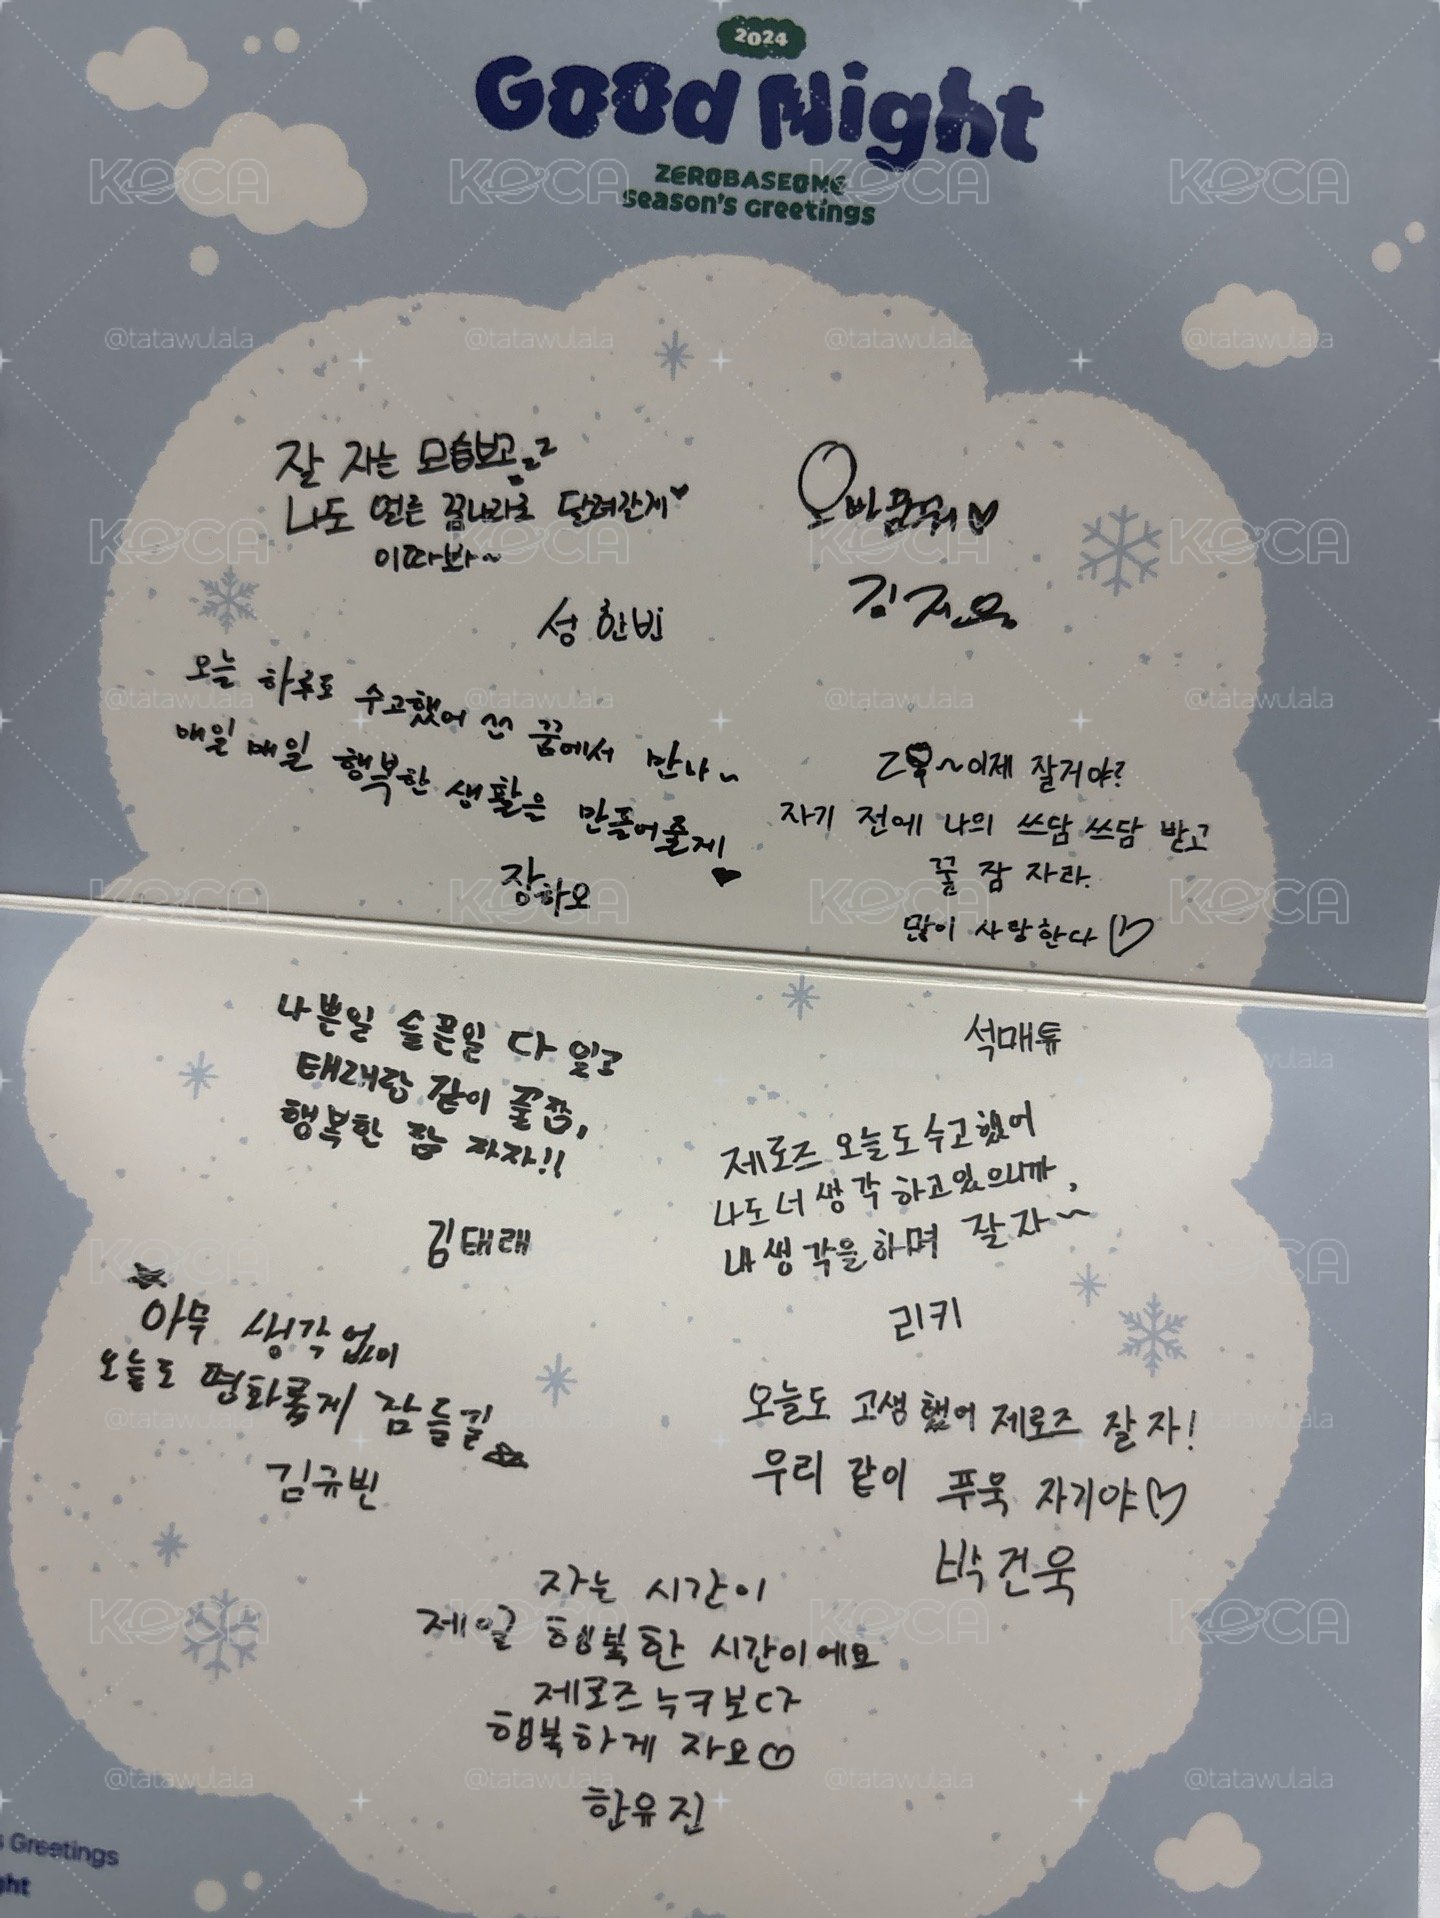 2024
Good Night
ZEROBASEONE
season's Greetings
잘 자는 모습보고zz
나도 얼른 꿈나라로 달려갈게♥
이따봐~
성한빈
오빠꿈꿔♡
김지웅
오늘 하루도 수고했어 ㅆ 꿈에서 만나~
매일 매일 행복한 생활은 만들어줄게♥
장하오
굿~이제 잘거야?
자기 전에 나의 쓰담 쓰담 받고
꿀 잠 자라.
많이 사랑한다♡
석매튜
나쁜일 슬픈일 다 잊고
태래랑 같이 꿀잠,
행복한 잠 자자!!
김태래
제로즈 오늘도 수고했어
나도 너 생각 하고있으니까,
내 생각을하며 잘자~
리키
아무 생각없이
오늘도 평화롭게 잠들길
김규빈
오늘도 고생했어 제로즈 잘자!
우리 같이 푸욱 자기야♡
박건욱
자는 시간이
제일 행복한 시간이에요
제로즈 누구보다
행복하게 자요♡
한유진
s Greetings
ght
KOCA
@tatawulala